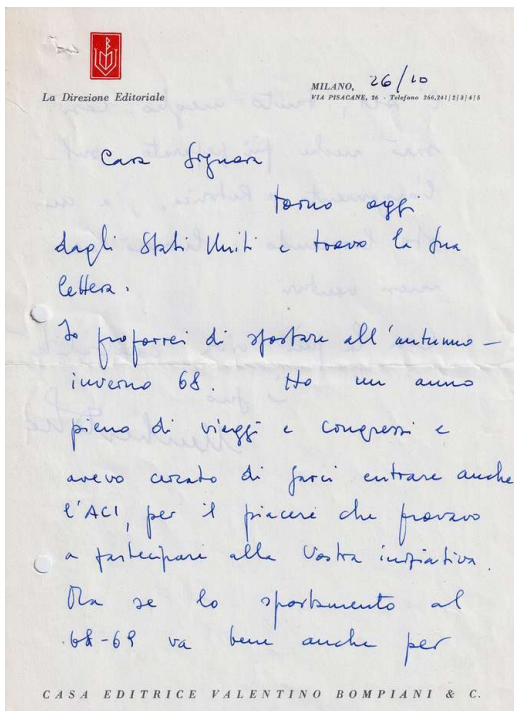 La Direzione Editoriale
MILANO, 26/10
VIA PISACANE, 26 - Telefono 266,241|2|3|4|5
Cara Signora
torno oggi
dagli Stati Uniti e trovo la Sua
lettera.
Io proporrei di spostare all'autunno-
inverno 68. Ho un anno
pieno di viaggi e congressi e
avevo cercato di farci entrare anche
l'ACI, per il piacere che provavo
a partecipare alla Vostra iniziativa.
Ma se lo spostamento al
68-69 va bene anche per
CASA EDITRICE VALENTINO BOMPIANI & C.